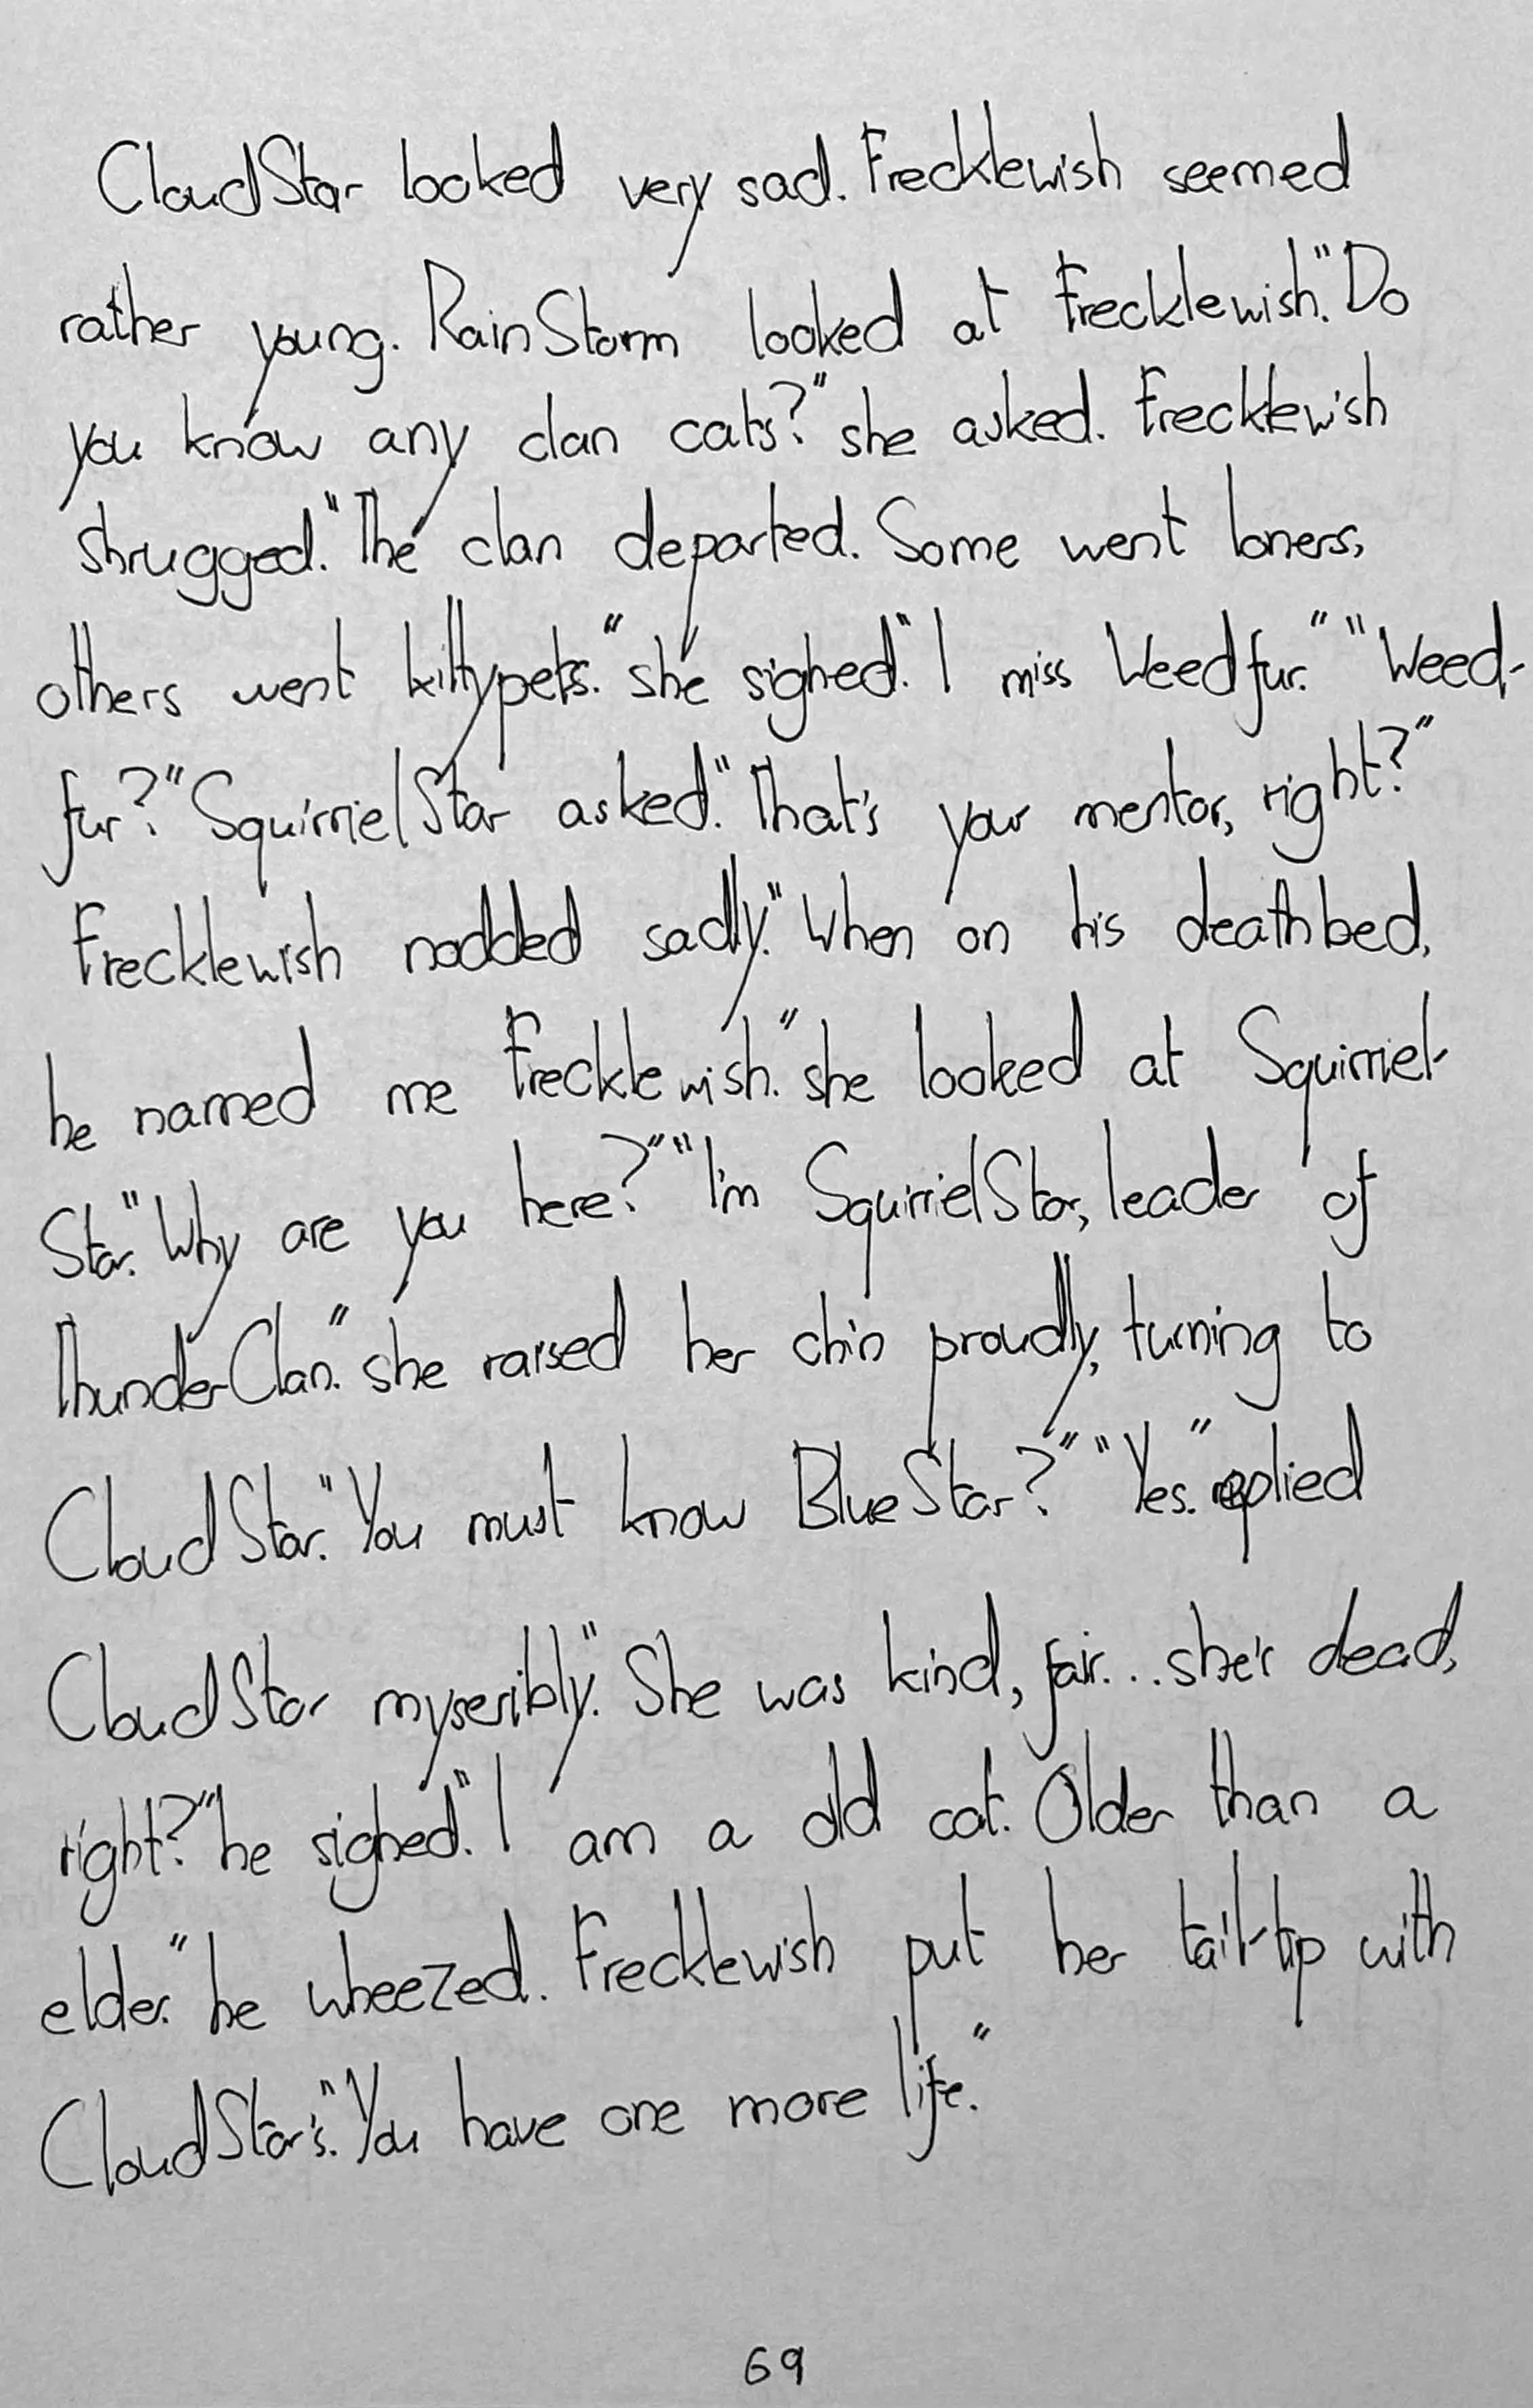 CloudStar looked very sad. Frecklewish seemed
rather young. RainStorm looked at Frecklewish. "Do
you know any clan cats?" she asked. Frecklewish
shrugged. "The clan departed. Some went loners,
others went kittypets." she sighed. "I miss Weedfur." "Weed-
fur?" SquirrielStar asked. "That's your mentor, right?"
Frecklewish nodded sadly. "When on his deathbed,
he named me Frecklewish." she looked at Squirriel-
Star. "Why are you here?" "I'm SquirrielStar, leader of
ThunderClan." she raised her chin proudly, turning to
CloudStar. "You must know BlueStar?" "Yes." replied
CloudStar myseribly. "She was kind, fair... she's dead,
right?" he sighed. "I am a old cat. Older than a
elder." he wheezed. Frecklewish put her tail-tip with
CloudStar's. "You have one more life."
69